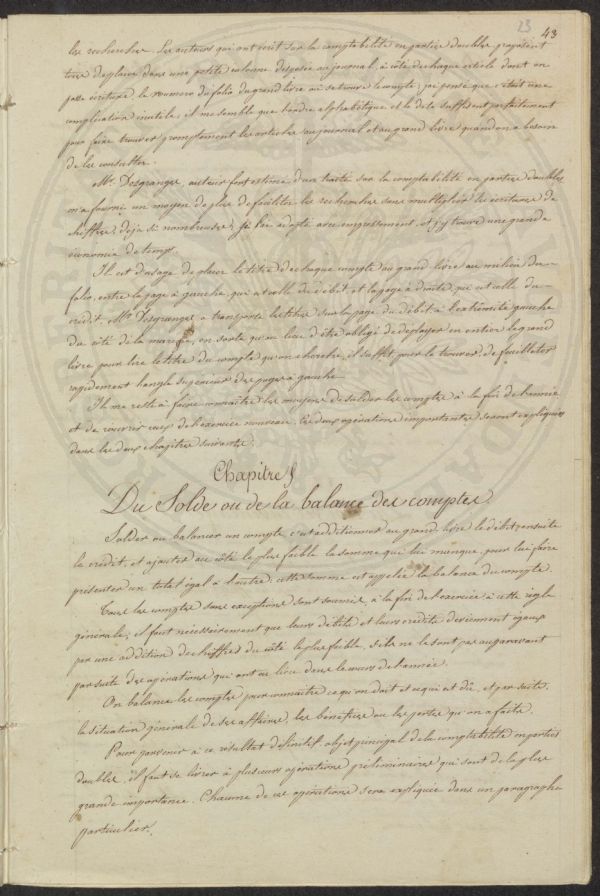 23 43
les recherches. Les auteurs qui ont écrit sur la comptabilité en partie doubles proposent
tous de placer dans une petite colonne disposée au journal, à côté de chaque article dont on
passe écriture le numéro du folio du grand livre où se trouve le compte; j'ai pensé que c'était une
complication inutile, il me semble que l'ordre alphabétique et la date suffisent parfaitement
pour faire trouver promptement les articles au journal et au grand livre quand on a besoin
de les consulter.
Mr. Desgranges, auteur fort estimé d'un traité sur la comptabilité en parties doubles
m'a fourni un moyen de plus de faciliter les recherches sans multiplier les écritures de
chiffres, déja si nombreuses; je l'ai adopté avec empressement et j'y trouve une grande
économie de temps.
Il est d'usage de placer le titre de chaque compte au grand livre au milieu du
folio, entre la page à gauche, qui est celle du débit et la page à droite, qui est celle du
crédit. Mr. Desgranges a transporté le titre sur la page du débit à l'extrêmité gauche
du côté de la marge, en sorte qu'au lieu d'être obligé de déployer en entier le grand
livre pour lire le titre du compte qu'on cherche, il suffit pour le trouver, de feuilleter
rapidement l'angle supérieur des pages à gauche.
Il me reste à faire connaître les moyens de solder les comptes à la fin de l'année
et de rouvrir ceux de l'exercice nouveau. Ces deux opérations importantes seront expliquées
dans les deux chapitres suivants.
Chapitre
Du Solde ou de la balance des comptes
Solder ou balancer un compte c'est additionner au grand livre le débit, ensuite
le crédit, et ajouter au côté le plus faible la somme qui lui manque, pour lui faire
présenter un total égal à l'autre: cette somme est appelée la balance du compte.
Tous les comptes sans exceptions sont soumis, à la fin de l'exercice à cette règle
générale; il faut nécessairement que leurs débits et leurs crédits deviennent égaux
par une addition de chiffres du côté le plus faible, s'ils ne le sont pas auparavant
par suite des opérations qui ont eu lieu dans le cours de l'année.
On balance les comptes pour connaître ce qu'on doit et ce qui est dû, et par suite,
la situation générale de ses affaires, les bénéfices ou les pertes qu'on a faits.
Pour parvenir à ce résultat définitif, objet principal de la comptabilité en parties
doubles, il faut se livrer à plusieurs opérations préliminaires qui sont de la plus
grande importance. Chacune de ces opérations sera expliquée dans un paragraphe
particulier.